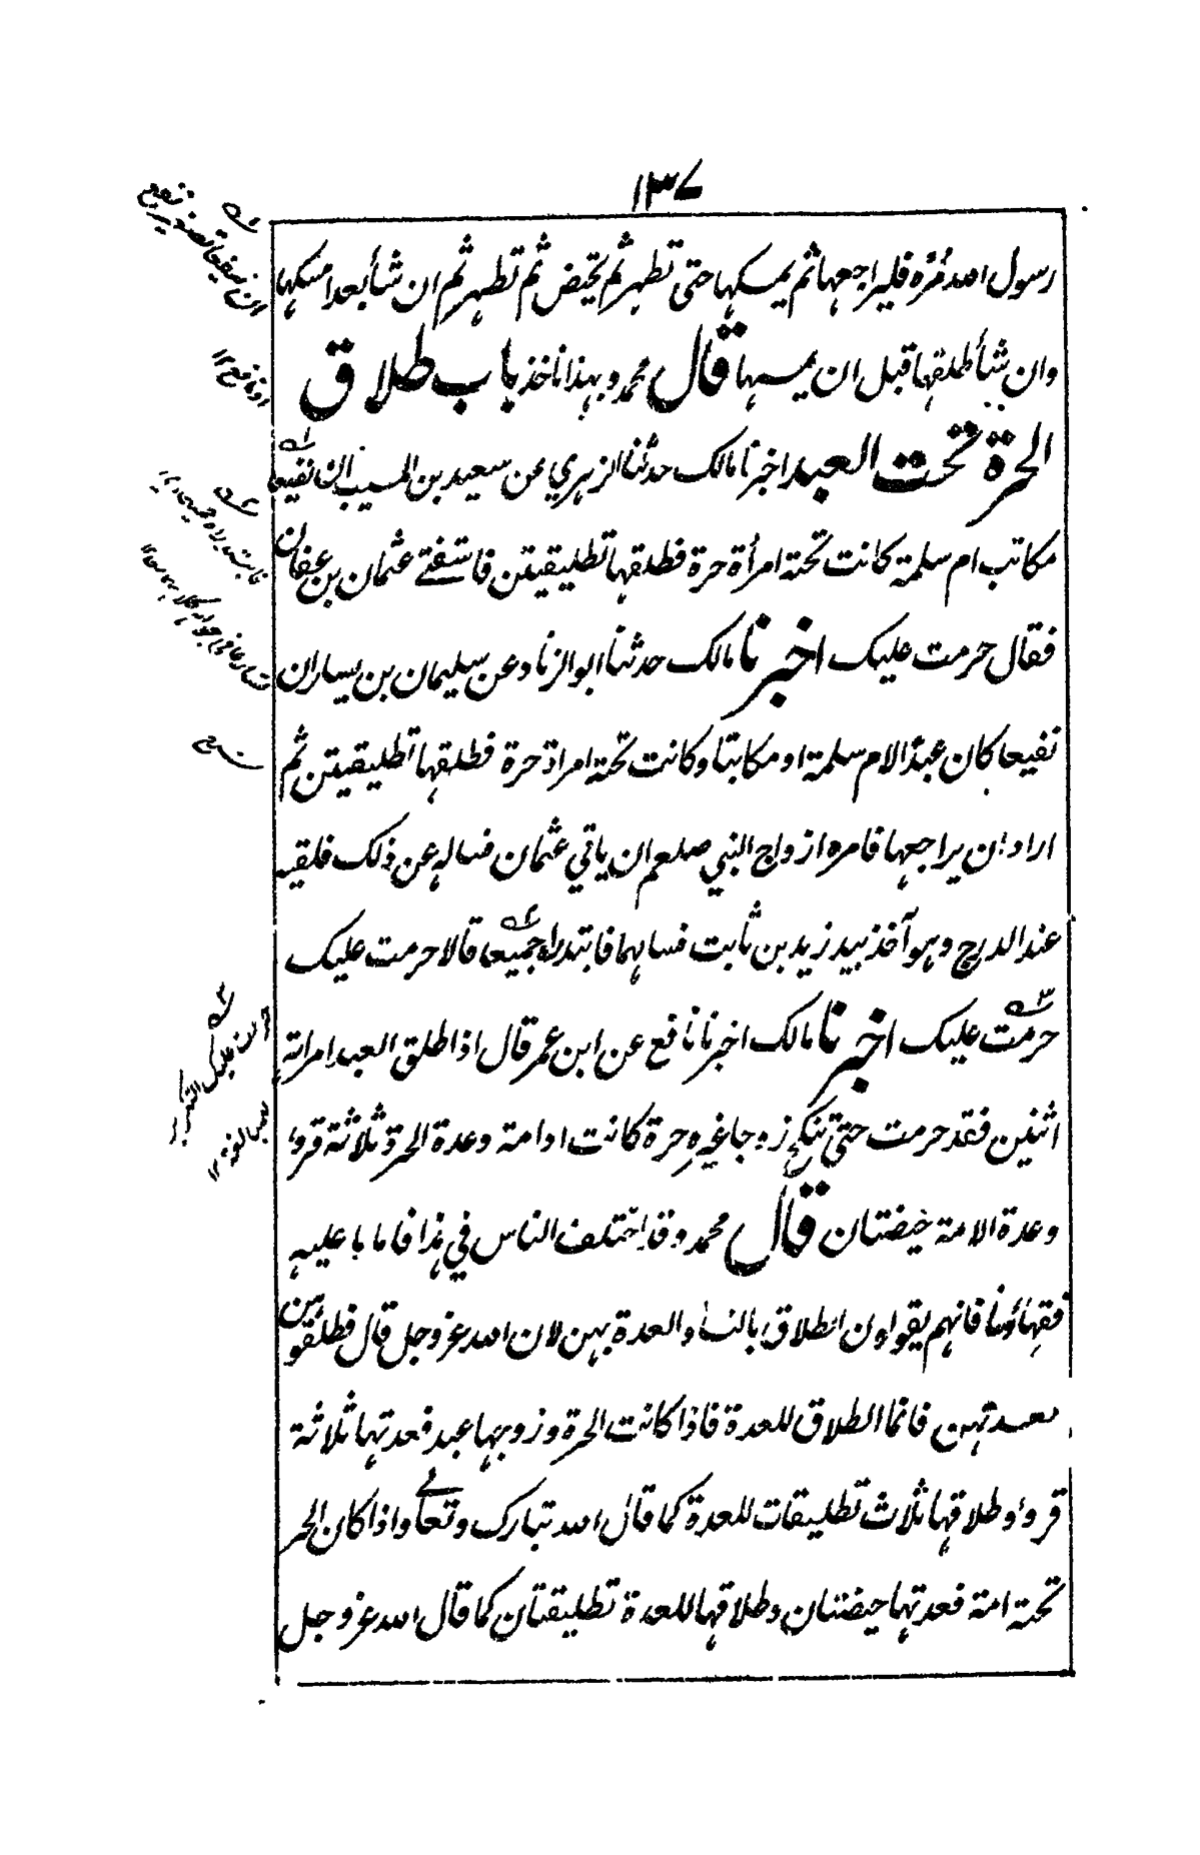 ۱۳۷
رسول الله مُرْه فليراجعها ثم يمسكها حتى تطهر ثم تحيض ثم تطهر ثم ان شأ بعد امسكها
وان شأ طلقها قبل ان يمسها قال محمد و بهذا ناخذ باب طلاق
الحرة تحت العبد اخبرنا مالك حدثنا الزهري عن سعيد بن المسيب ان نفيعا
مكاتب ام سلمة كانت تحته امرأة حرة فطلقها تطليقتين فاستفتے عثمان بن عفان
فقال حرمت عليك اخبرنا مالك حدثنا ابو الزناد عن سليمان بن يسار ان
نفيعا كان عبدًا لام سلمة او مكاتبا و كانت تحته امراة حرة فطلقها تطليقتين ثم
اراد ان يراجعها فامره ازواج النبي صلعم ان ياتي عثمان فساله عن ذلك فلقيه
عند الدرج وهو آخذ بيد زيد بن ثابت فسالهما فابتدراه جميعا قالا حرمت عليك
حرمت عليك اخبرنا مالك اخبرنا نافع عن ابن عمر قال اذا طلق العبد امراته
اثنين فقد حرمت حتى تنكح زوجا غيره حرة كانت او امة وعدة الحرة ثلاثة قروء
وعدة الامة حيضتان قال محمد و قد اختلف الناس في هذا فاما ما عليه
فقهاؤنا فانهم يقولون الطلاق بالنسأ والعدة بهن لان الله عز وجل قال فطلقوهن
لعدتهن فانما الطلاق للعدة فاذا كانت الحرة و زوجها عبد فعدتها ثلاثة
قروء و طلاقها ثلاث تطليقات للعدة كما قال الله تبارك وتعالے واذا كان الحر
تحته امة فعدتها حيضتان و طلاقها للعدة تطليقتان كما قال الله عز وجل